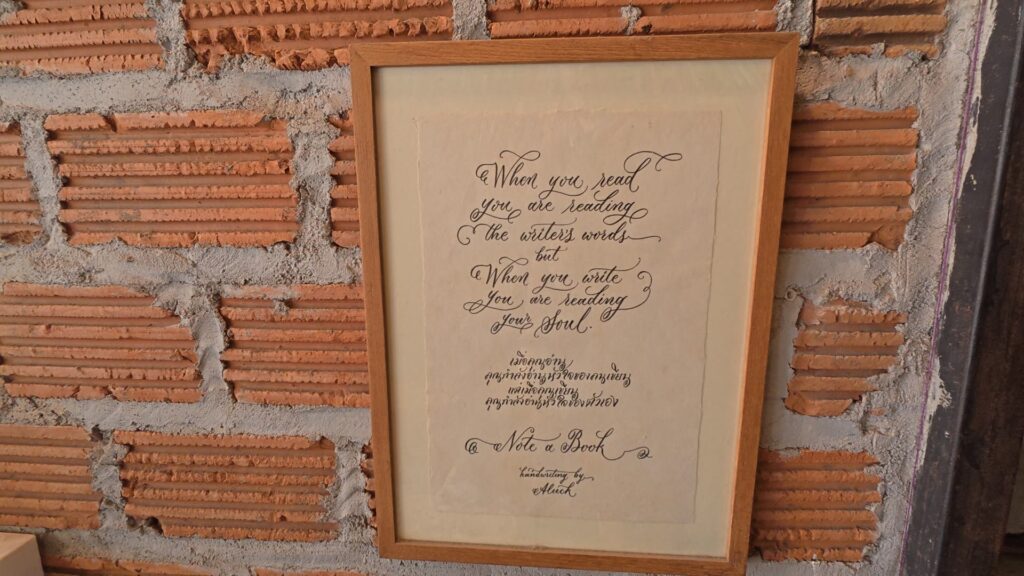 When you read
you are reading
the writer's words
but
When you write
You are reading
your Soul.
เมื่อคุณอ่าน
คุณกำลังอ่านหัวใจของคนเขียน
แต่เมื่อคุณเขียน
คุณกำลังอ่านหัวใจของตัวเอง
Note a Book
handwriting by
Aluck